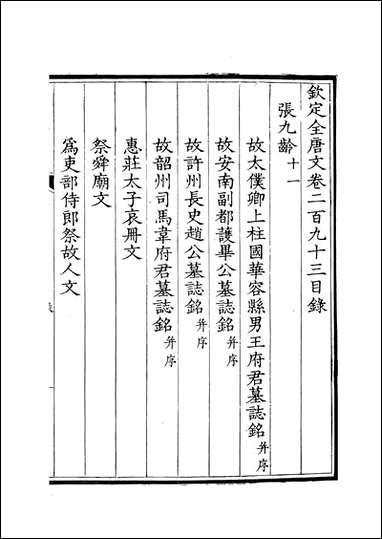 欽定全唐文卷二百九十三目錄
張九齡十一
故太僕卿上柱國華容縣男王府君墓誌銘并序
故安南副都護畢公墓誌銘并序
故許州長史趙公墓誌銘并序
故韶州司馬韋府君墓誌銘并序
惠莊太子哀冊文
祭舜廟文
爲吏部侍郎祭故人文